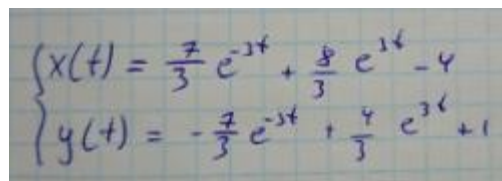 x(t) = 7/3 e^{-3t} + 8/3 e^{3t} - 4
y(t) = -7/3 e^{-3t} + 4/3 e^{3t} + 1